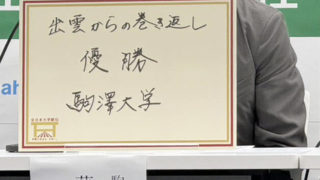 出雲からの巻き返し
優勝
駒澤大学